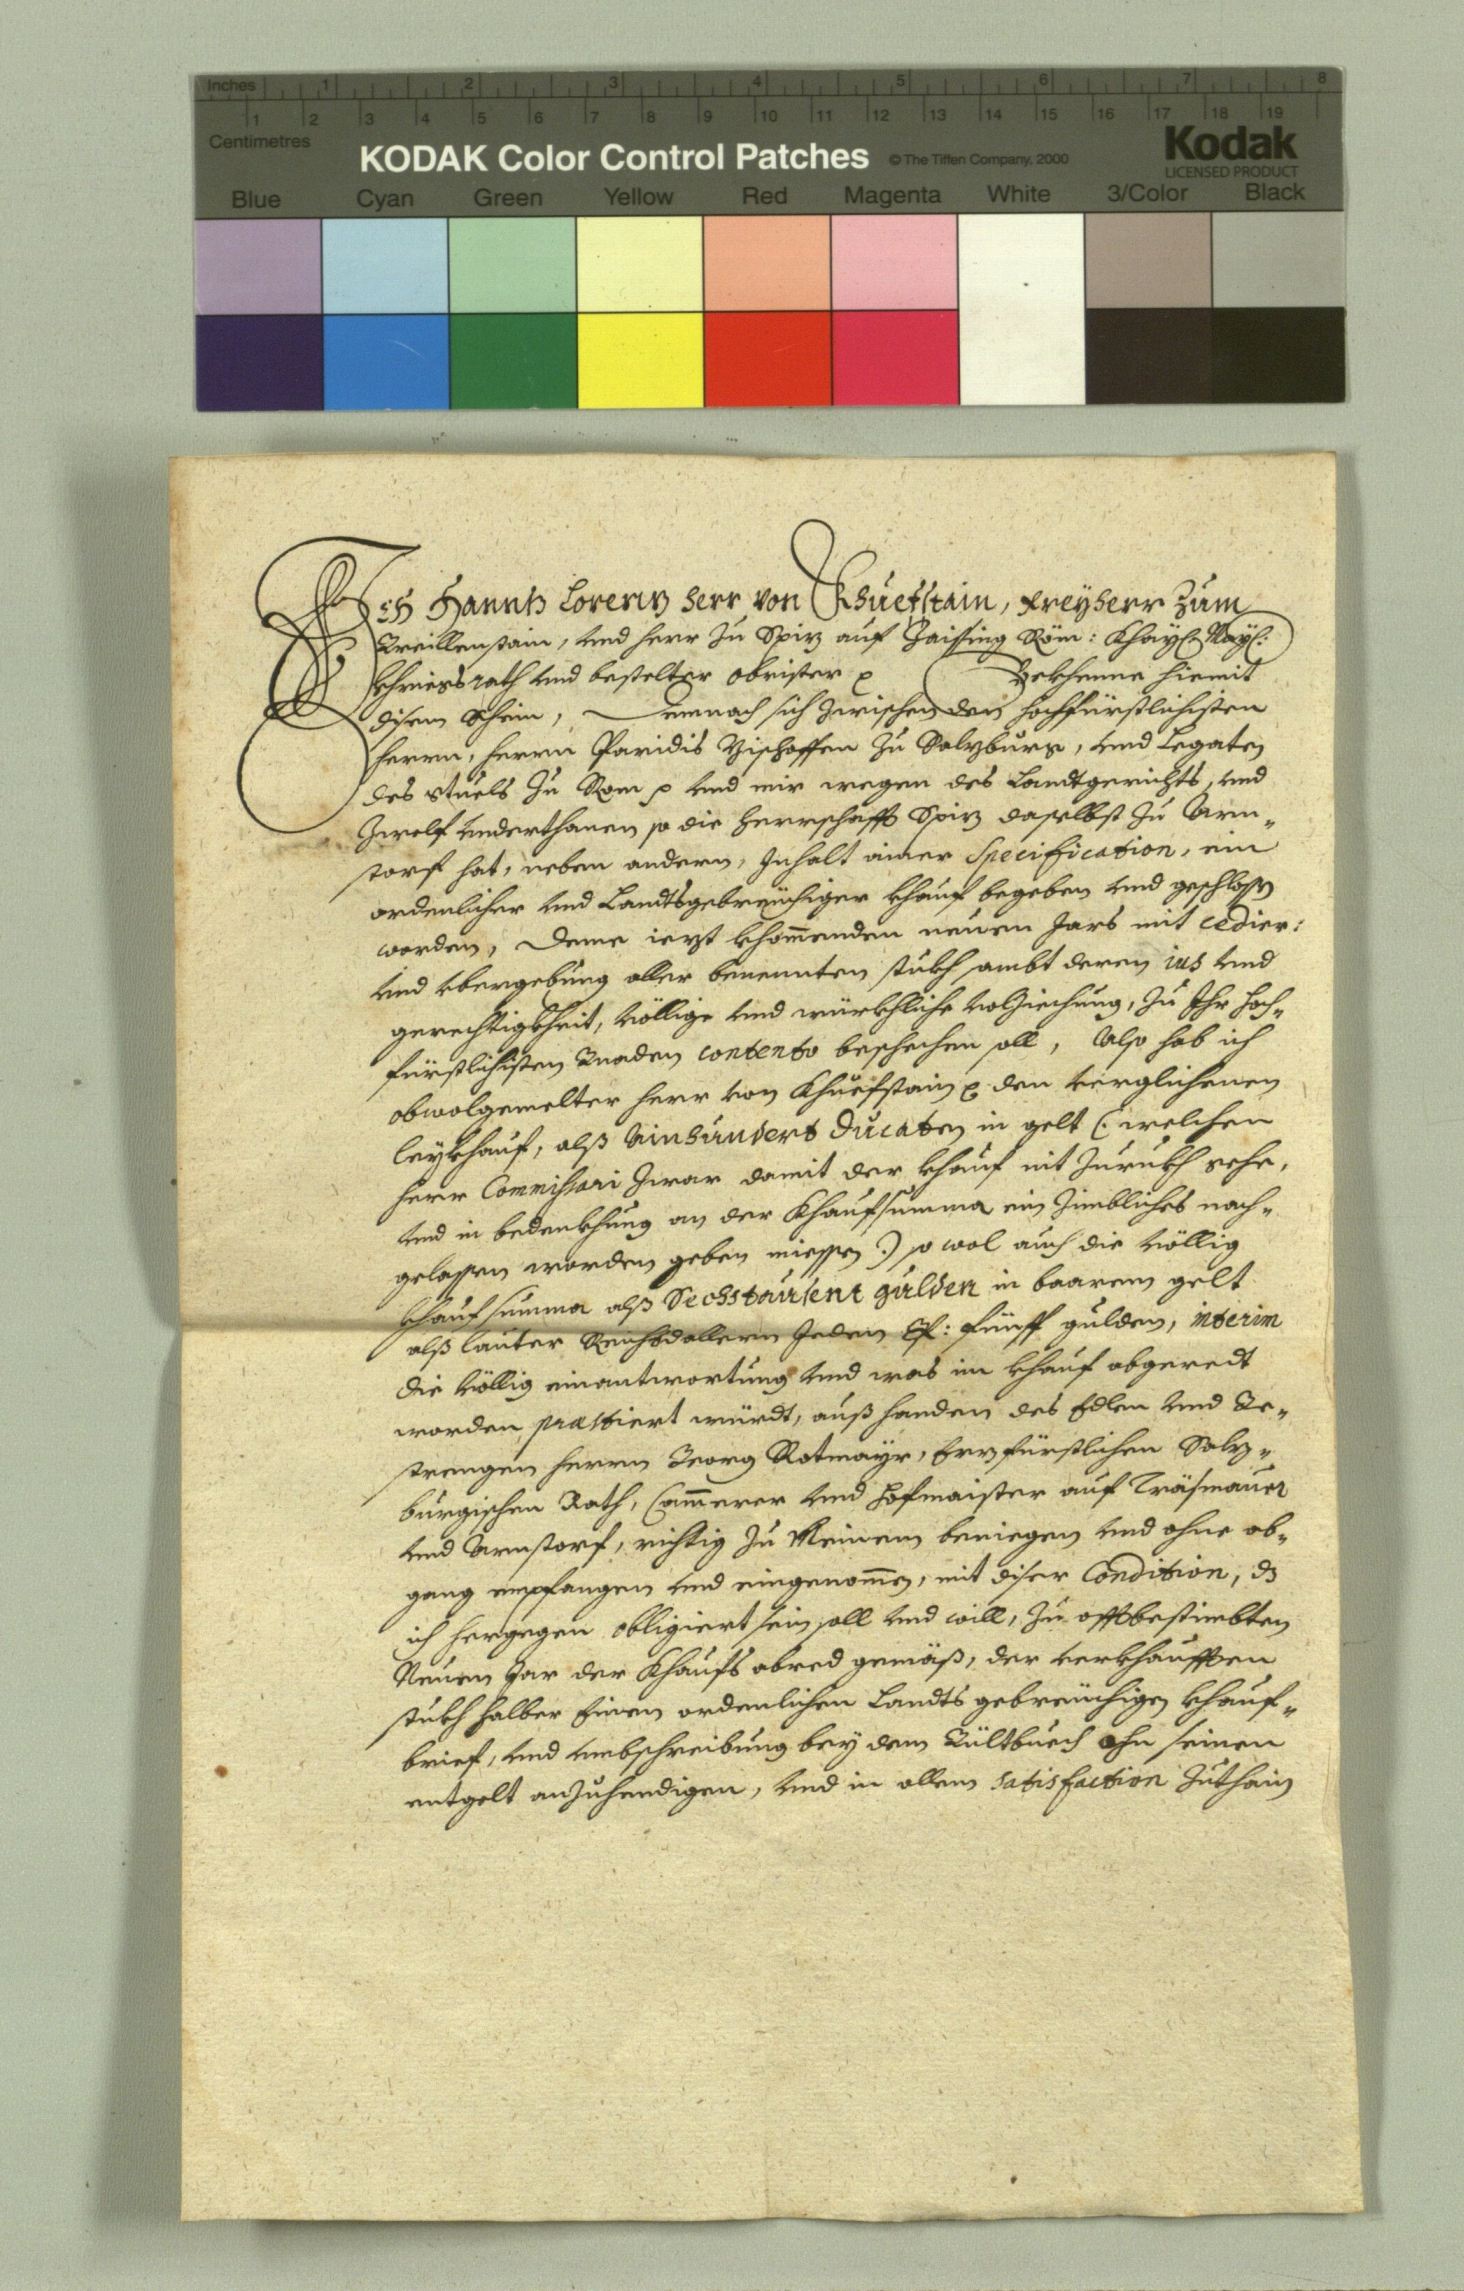 Inches 1 2 3 4 5 6 7 8
1 2 3 4 5 6 7 8 9 10 11 12 13 14 15 16 17 18 19
Centimetres
KODAK Color Control Patches © The Tiffen Company, 2000 Kodak
LICENSED PRODUCT
Blue Cyan Green Yellow Red Magenta White 3/Color Black
Ich Hannß Lorentz Herr von Khuefstain, Freyherr zum
Greillenstain, und herr zu Spitz auf Zaissing Röm: Khay: May:
khriegsrath und bestelter obrister Bekhenne hiemit
disem schein, Demnach sich zwischen den hochfürstlichisten
herrn, herrn Paridis Bischoffen zu Salzburg, und Legaten
des stuels zu Rom und mir wegen des Landtgerichts, und
zwelf underthanen so die herrschafft Spitz daselbst zu Arn-
storf hat, neben andern, Inhalt ainer Specification, ein
ordenlicher und Landtsgebreüchiger khauf begeben und geschlossen
worden, Deme ietzt khommenden neuen Jars mit cedier:
und ubergebung aller benennten stukh sambt deren ius und
gerechtigkheit, völlige und würkhliche volziechung, zu Ihr hoch-
fürstlichisten Gnaden contento beschechen soll, Also hab ich
obwolgemelter herr von Khuefstain den verglichenen
leykhauf, alß Ainhundert Ducaten in gelt (: welchen
herr Commissari zwar damit der khauf nit zurukh gehe,
und in bedenkhung an der Khaufsumma ein zimbliches nach-
gelassen worden geben miessen :) so wol auch die völlig
khaufsumma alß Sechstausent gulden in baarem gelt
alß lauter Reichsdallern Jeden fünff gulden, interim
die völlig einantwortung und was im khauf abgeredt
worden præstiert würdt, auß handen des Edlen und Ge-
strengen herrn Georg Rotmayr, Erzfürstlichen Salz-
burgischen Rath, Cammerer und Hofmaister auf Träsmauer
und Arnstorf, richtig zu Meinem beniegen und ohne ab-
gang empfangen und eingenommen, mit diser Condition, dz
ich hergegen obligiert sein soll und will, zu offtbestimbten
Neuen Jar der Khaufs abred gemäß, der verkhaufften
stukh halber Einen ordenlichen Landts gebreüchigen khauf-
brief, und umbschreibung bey dem Gültbuech ohn seinen
entgelt anzuhendigen, und in allem satisfaction zuthain